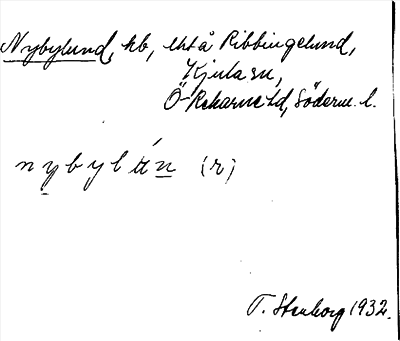 Nybylund, hb, uhtå Ribbingelund,
Kjula sn,
Ö-Rekarne hd, Söderm. l.
nybylún (r)
T. Stenborg 1932.